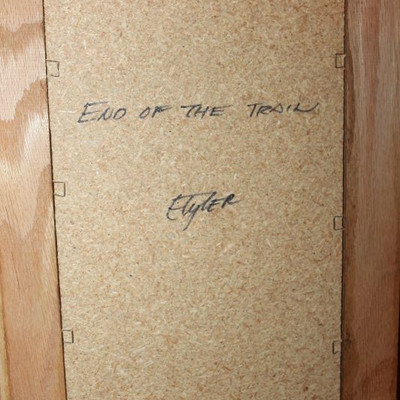 END OF THE TRAIL
ETyLER